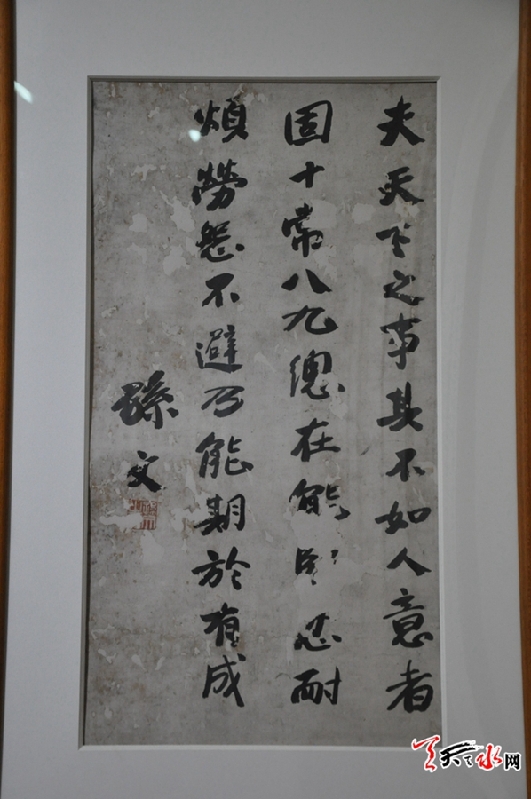 夫天下之事其不如人意者
固十常八九總在能堅忍耐
煩勞怨不避乃能期於有成
孫文
天水网